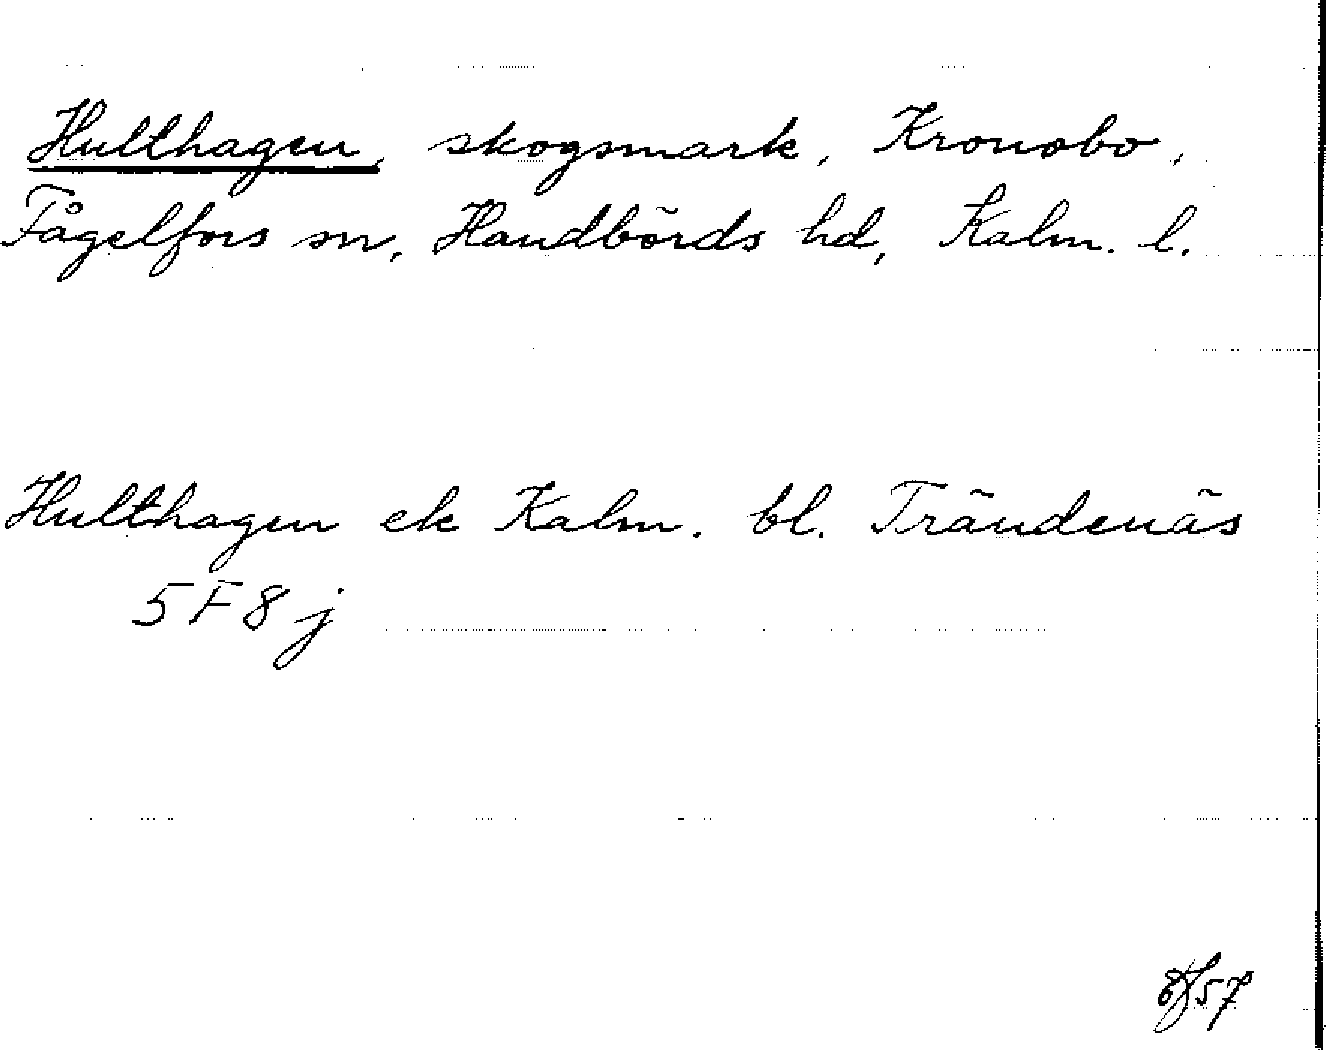 Hulthagen, skogsmark, Kronobo,
Fågelfors sn, Handbörds hd, Kalm. l.
Hulthagen ek Kalm. bl. Trändenäs
5 F 8 j